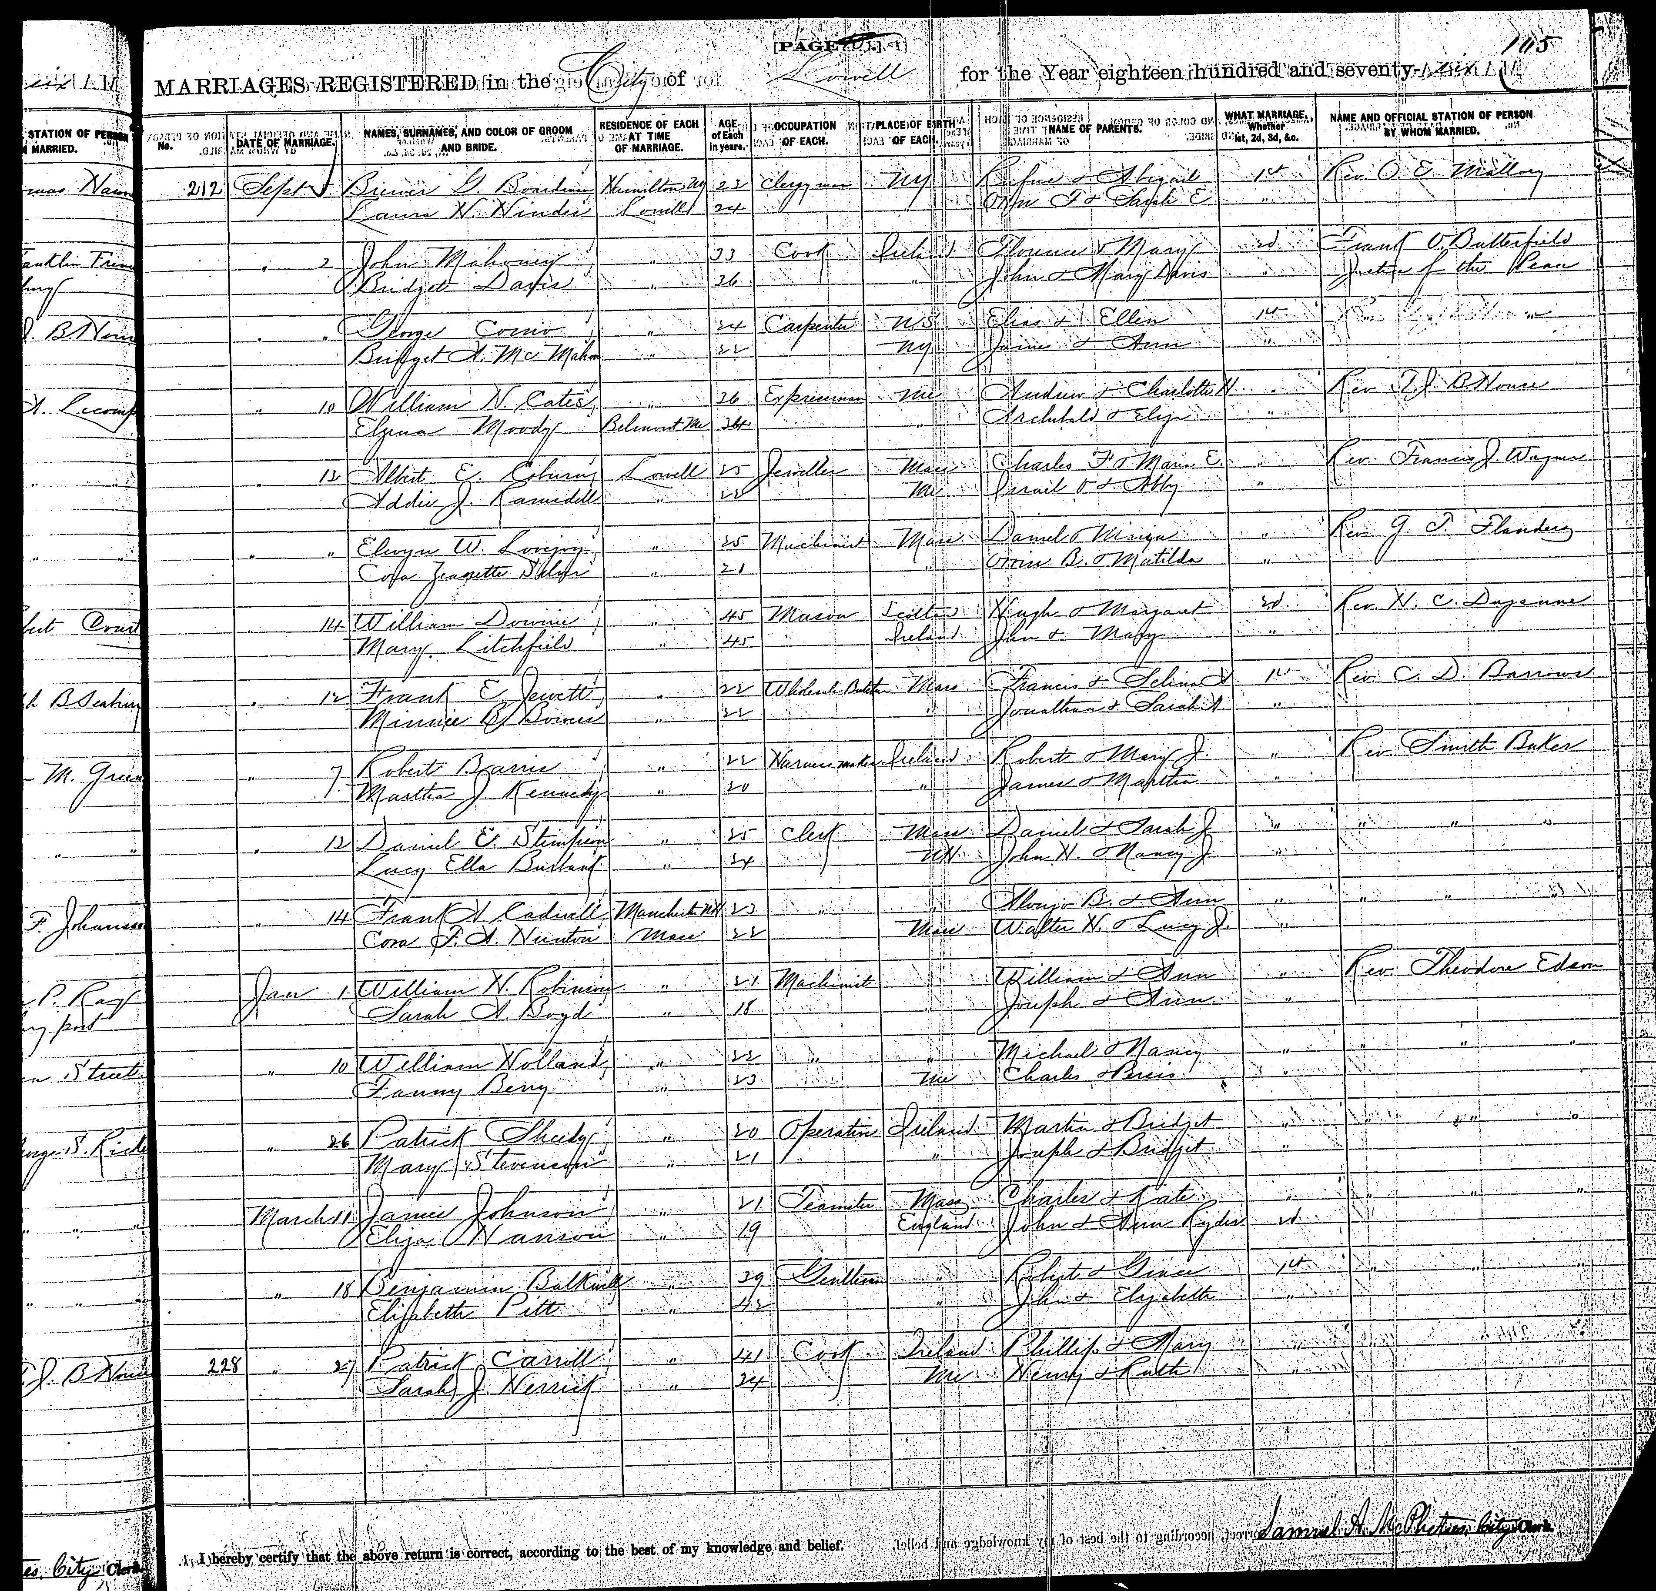 [PAGE
165
MARRIAGES REGISTERED in the City of Lowell for the Year eighteen hundred and seventy-
STATION OF PERSON
MARRIED.
No.
DATE OF MARRIAGE.
NAMES, SURNAMES, AND COLOR OF GROOM AND BRIDE.
RESIDENCE OF EACH AT TIME OF MARRIAGE.
AGE of Each in years.
OCCUPATION OF EACH.
PLACE OF BIRTH OF EACH.
NAME OF PARENTS.
WHAT MARRIAGE, Whether 1st, 2d, 3d, &c.
NAME AND OFFICIAL STATION OF PERSON BY WHOM MARRIED.
212 Sept 5 Brewer G. Boardman Hamilton NY 22 Clergyman NY Rufus & Abigail 1st Rev. O. E. Mallory
Laura H. Hinds Lowell 24 & Sarah E "
" 2 John Mahoney " 33 Cook Ireland Florence & Mary 2d Frank O. Butterfield
Bridget Davis " 26 " John & Mary Davis " Justice of the Peace
" " George " 24 Carpenter NS Elias & Ellen 1st
Bridget A. McMahon " 22 NY James & Ann "
" 10 William H. Cates " 26 Expressman Me Andrew & Charlotte H " Rev. J. B House
Moody Belmont Me 24 " Archibald & Eliza "
" 12 Albert E. Coburn Lowell 25 Jeweller Mass Charles F & Maria E. " Rev. Francis J. Wagner
Addie J. Ramsdell " 22 Me Israil & Abby "
" " Elwyn W. Lovejoy " 25 Machinist Mass Daniel & " Rev. G. T. Flanders
Cora Jeanette " 21 " Orrin B. & Matilda "
" 14 William Downie " 45 Mason Scotland Hugh & Margaret 2d Rev. H. C.
Mary Litchfield " 45 Ireland John & Mary "
" 12 Frank E. Jewett " 22 Wholesale Mass Francis & Selina A 1st Rev. C. D. Barrows
Minnie B. Bowers " 22 " Jonathan & Sarah A "
" 7 Robert Barrie " 22 Harness maker Ireland Robert & Mary J. " Rev. Smith Baker
Martha J. Kennedy " 20 " James & Martha "
" 12 Daniel E. Stimpson " 25 Clerk Mass Daniel & Sarah J " " " "
Lucy Ella Burbank " 24 NH John H. & Nancy J. "
" 14 Frank A Cadwell Manchester NH 23 " " Alonzo B. & Ann " " " "
Cora F. A. Newton Mass 22 Mass Walter H. & Lucy J. "
Jan 1 William H. Robinson " 21 Machinist " William & Ann " Rev. Theodore Edson
Sarah A. Boyd " 18 " Joseph & Ann "
" 10 William Holland " 22 " " Michael & Nancy " " " "
Fanny Berry " 23 Me Charles & "
" 26 Patrick Sheedy " 20 Operative Ireland Martin & Bridget " " " "
Mary Stevenson " 21 " Joseph & Bridget "
March 11 James Johnson " 21 Teamster Mass Charles & Kate " " " "
Eliza Hanson " 19 England John & Ann Ryder 2d
" 18 Benjamin Balkwell " 39 Gentleman " Robert & Grace 1st " " "
Elizabeth Pitt " 42 " John & Elizabeth "
228 " 27 Patrick Carroll " 41 Cook Ireland Phillip & Mary " " " "
Sarah J. Herrick " 24 Me Henry & Ruth "
I hereby certify that the above return is correct, according to the best of my knowledge and belief.
Samuel A. McPhetres, City Clerk.
City Clerk.